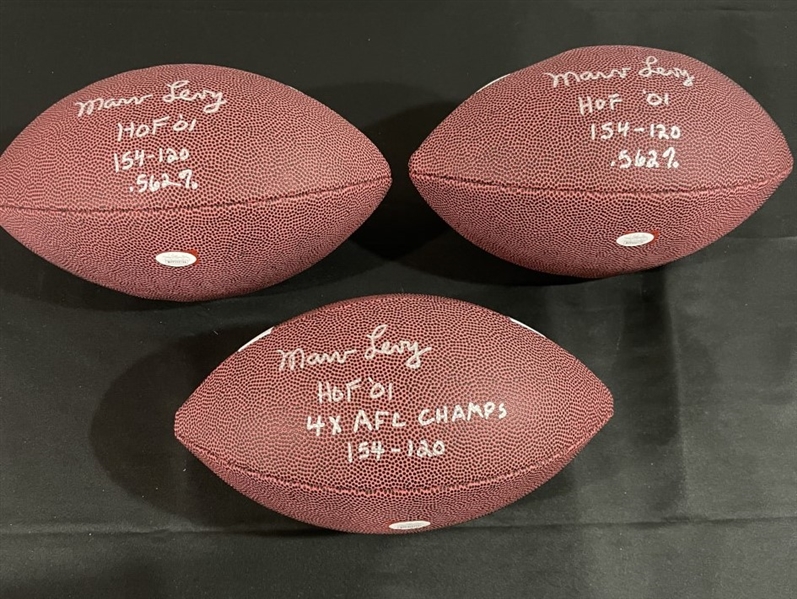 Marv Levy
HOF '01
154-120
.562%
Marv Levy
HOF '01
154-120
.562%
Marv Levy
HOF '01
4X AFL CHAMPS
154-120